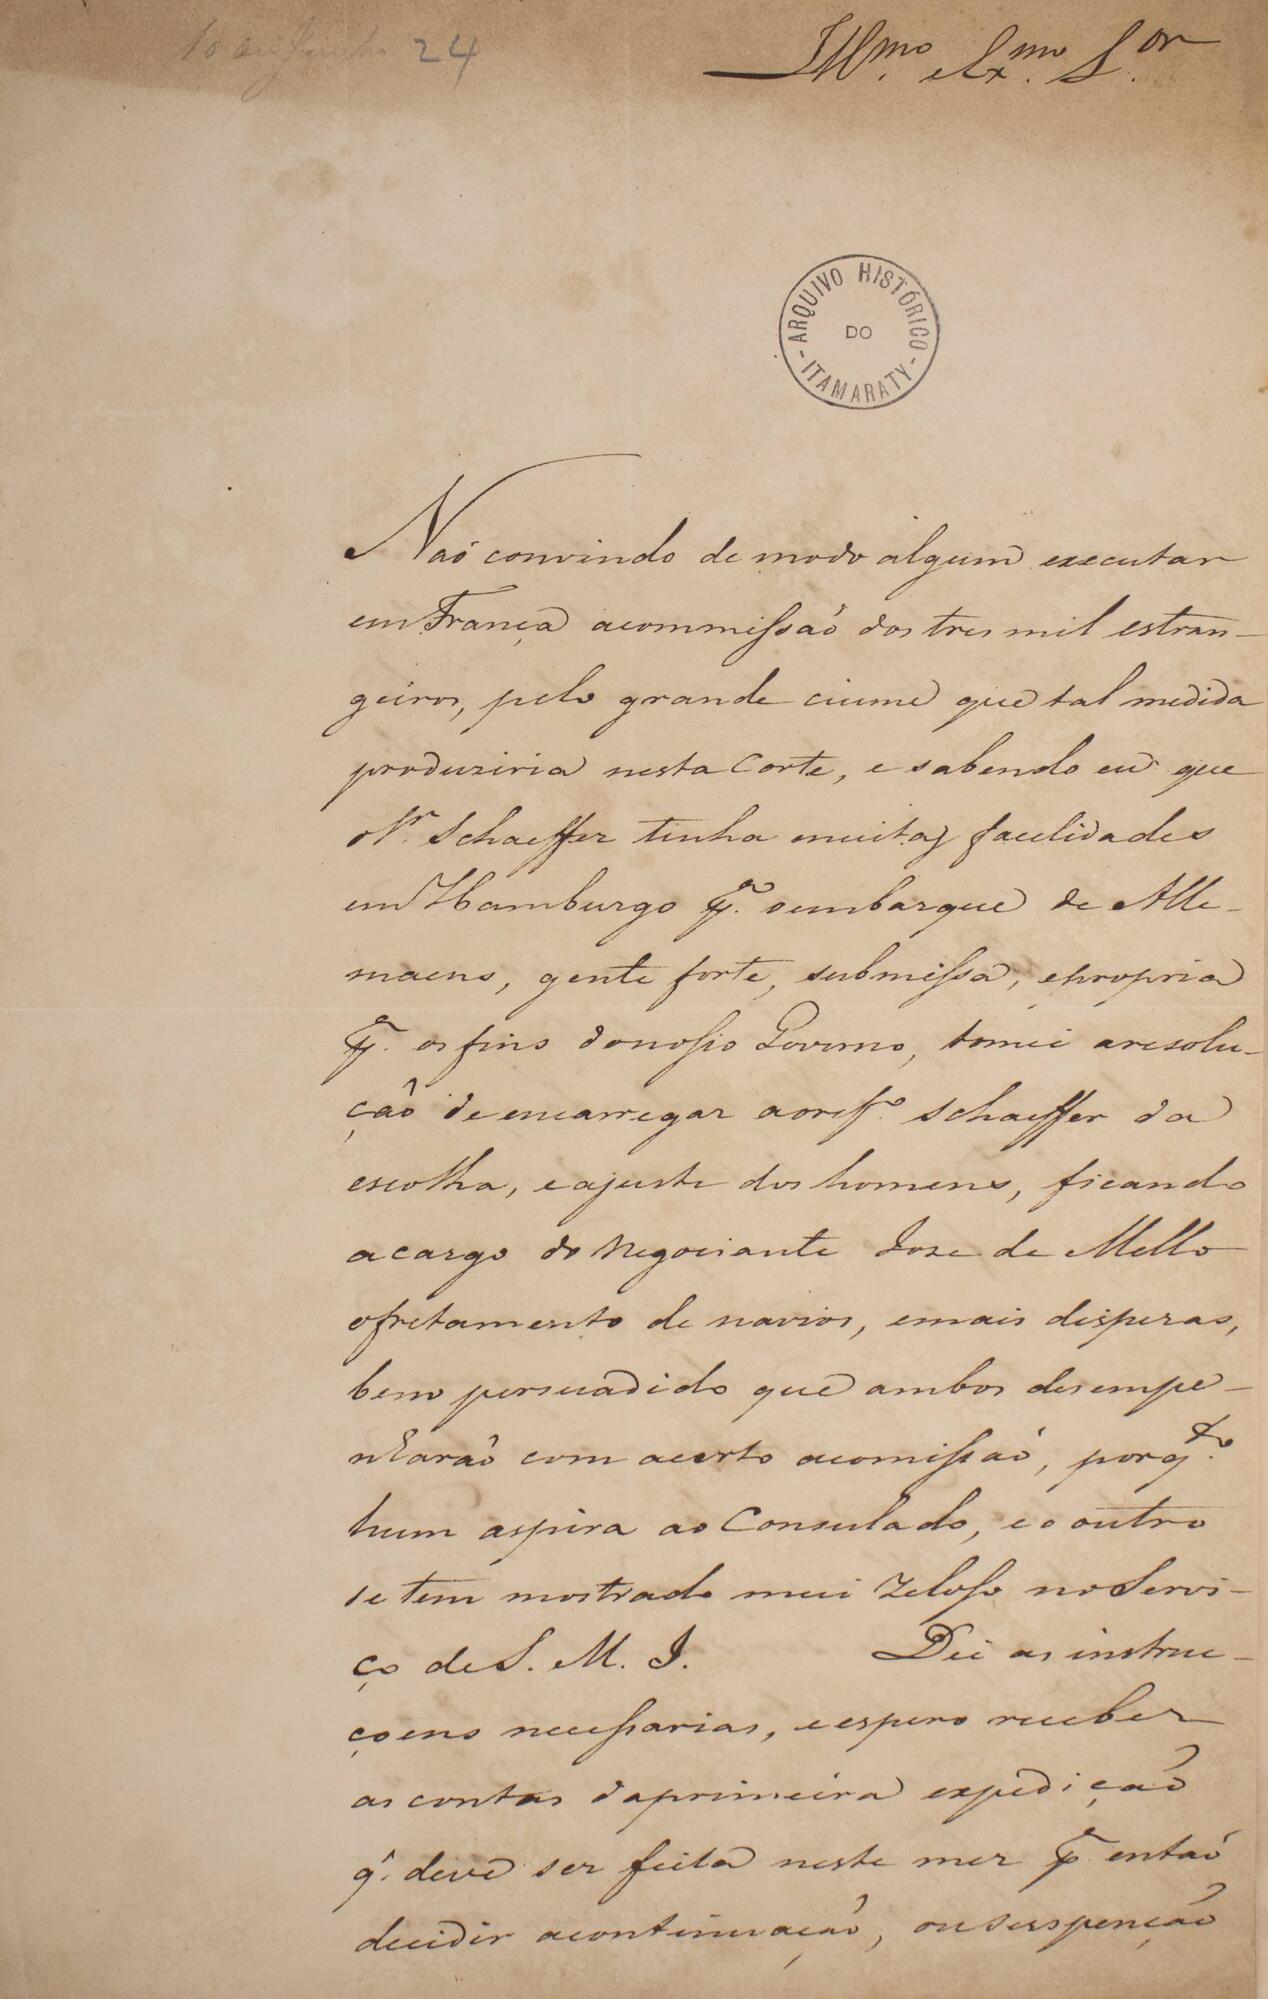 10 de Junho 24
Illmo. e Exmo. Sor.
ARQUIVO HISTÓRICO
DO
ITAMARATY
Naõ convindo de modo algum executar
em França a commissaõ dos tres mil estran-
geiros, pelo grande ciume que tal medida
produziria nesta Corte, e sabendo eu que
o Mr. Schaeffer tinha muitas facelidades
em Hamburgo pa. o embarque de Alle-
maens, gente forte, submissa, e propria
pa. os fins do nosso Governo, tomei a resolu-
çaõ de encarregar ao refo. Schaeffer da
escolha, e ajuste dos homens, ficando
a cargo do Negociante Joze de Mello
o fretamento de navios, e mais despezas,
bem persuadido que ambos desempe-
nharaõ com acerto a comissaõ, porqto.
hum aspira ao Consulado, e o outro
se tem mostrado mui Zeloso no Servi-
ço de S. M. I. Dei as instruc-
çoens necessarias, e espero receber
as contas da primeira expediçaõ
q. deve ser feita neste mez pa. entaõ
decidir a continuaçaõ, ou suspençaõ